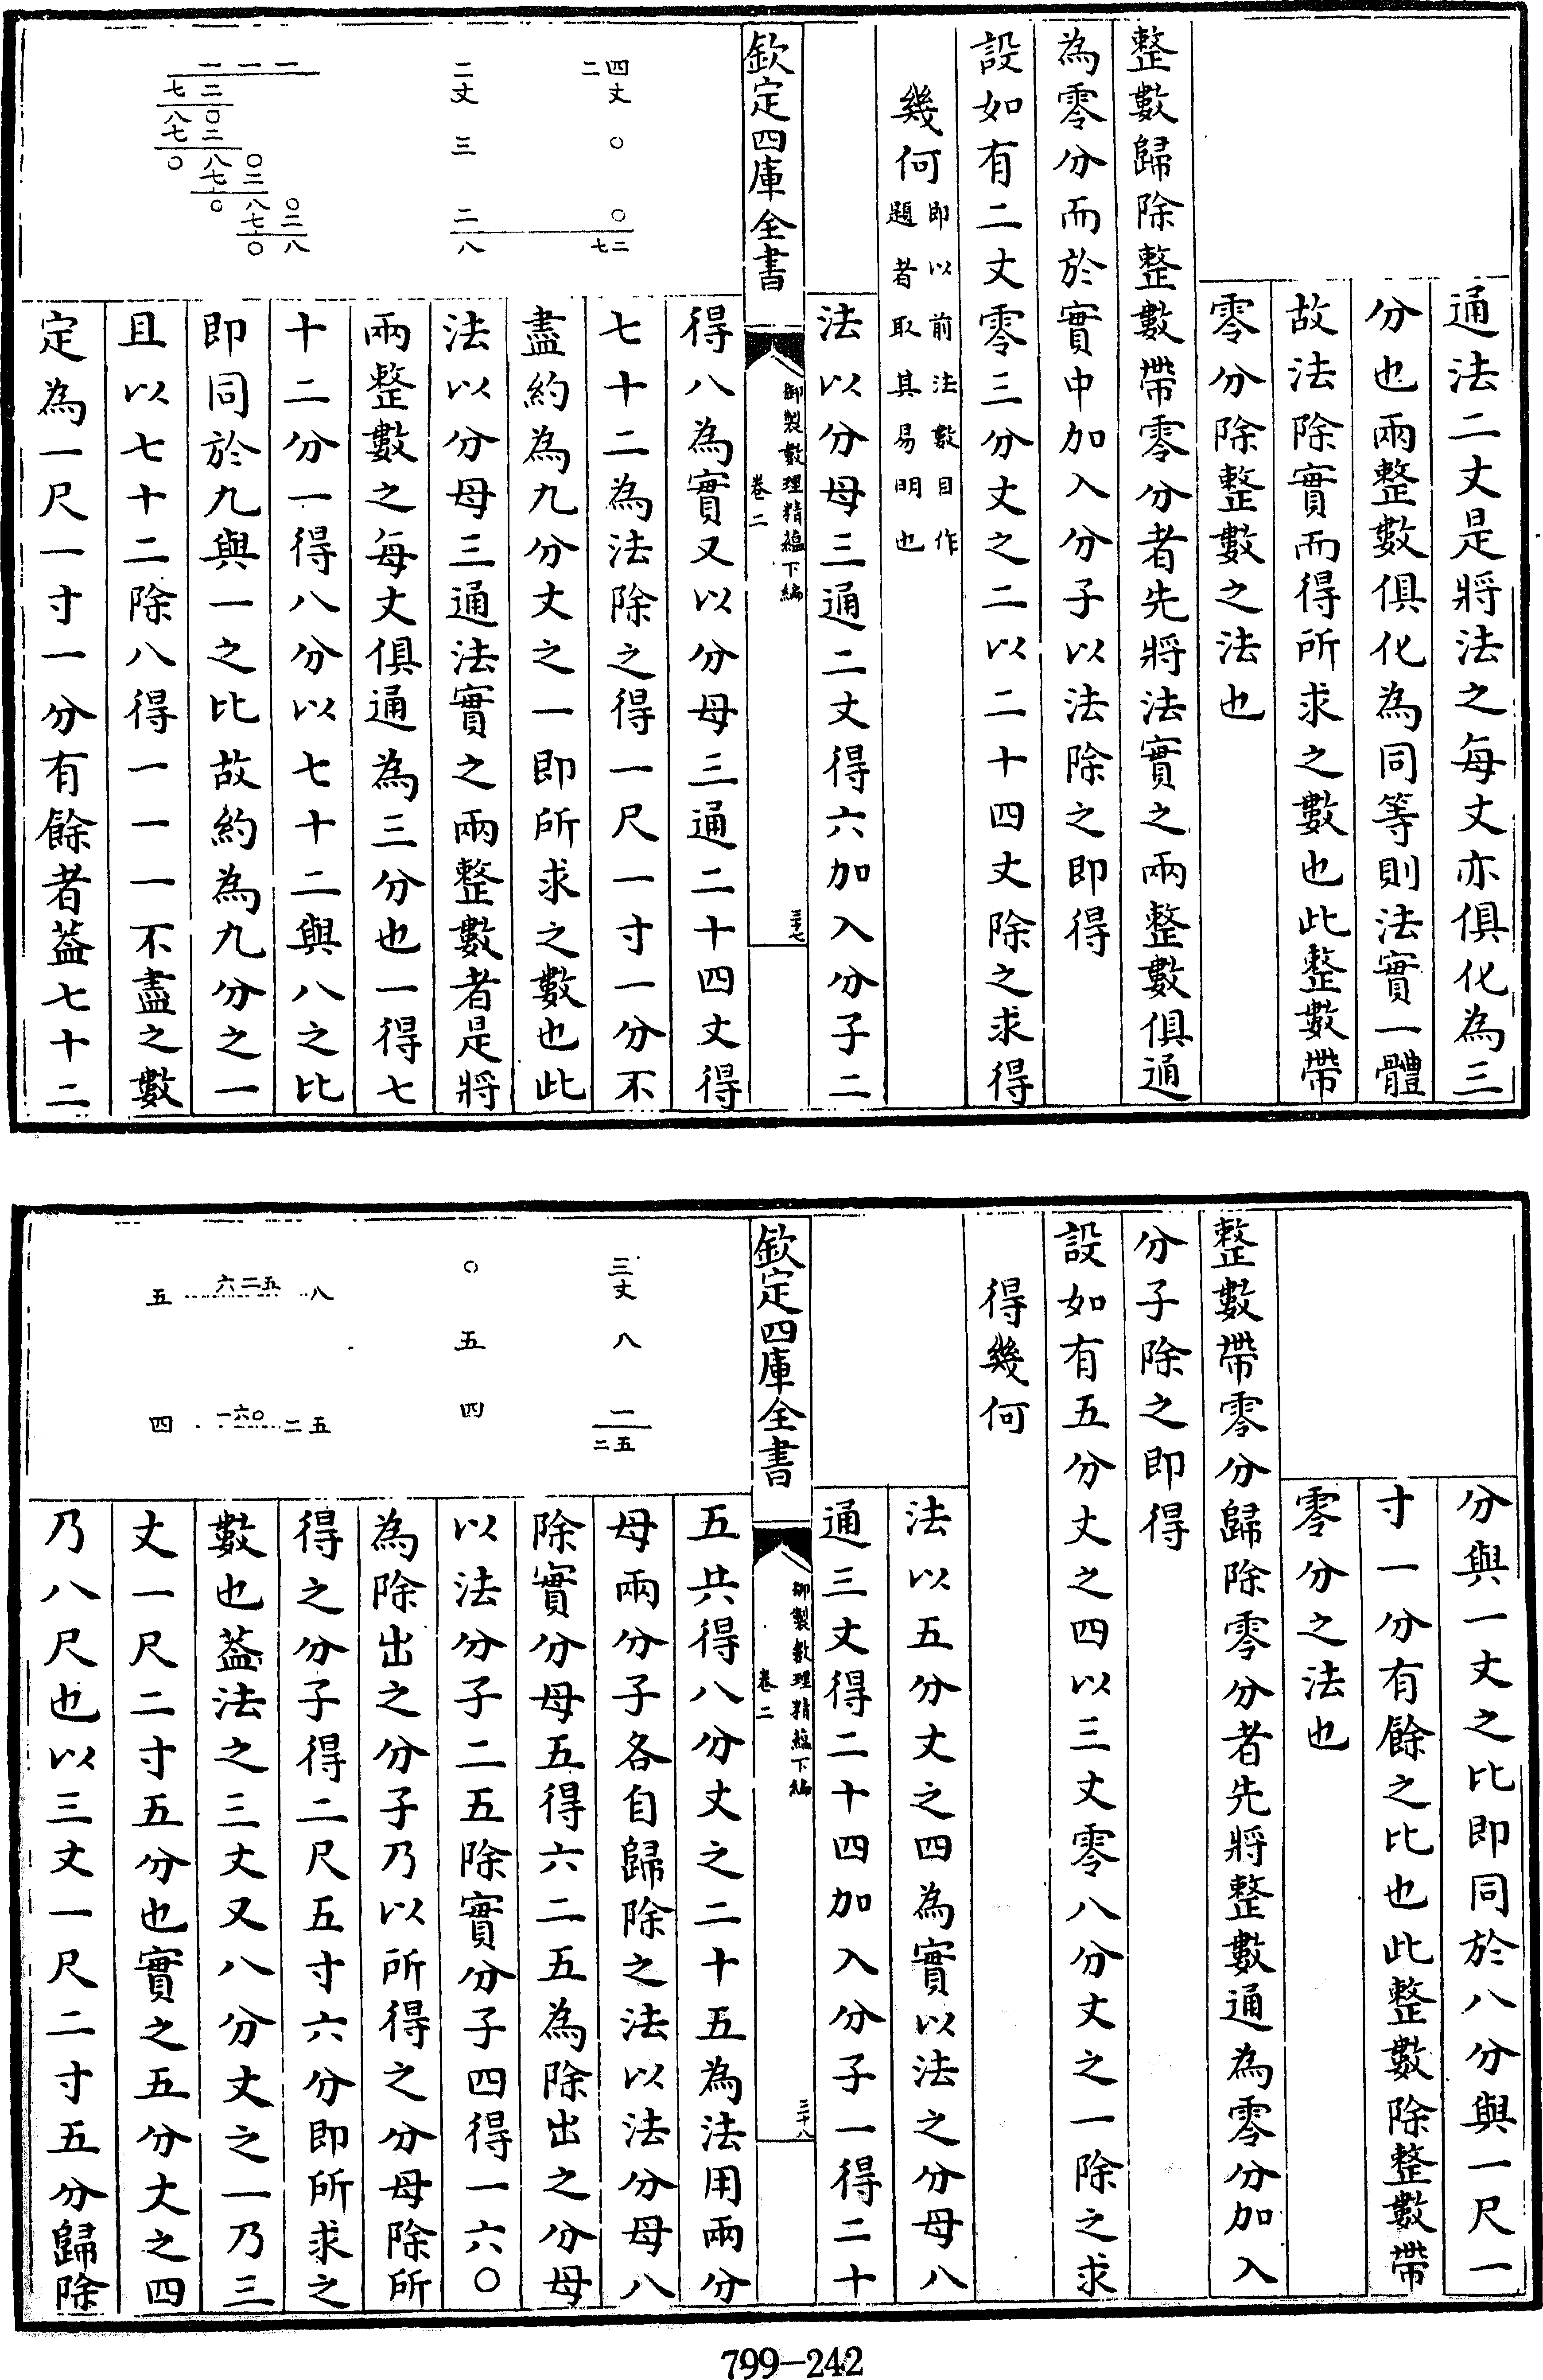 通法二丈是將法之每丈亦俱化為三
分也兩整數俱化為同等則法實一體
故法除實而得所求之數也此整數帶
零分除整數之法也
整數歸除整數帶零分者先將法實之兩整數俱通
為零分而於實中加入分子以法除之即得
設如有二丈零三分丈之二以二十四丈除之求得
幾何即以前法數目作
題者取其易明也
法以分母三通二丈得六加入分子二
欽定四庫全書
御製數理精蘊下編
卷二
三十七
得八為實又以分母三通二十四丈得
七十二為法除之得一尺一寸一分不
盡約為九分丈之一即所求之數也此
法以分母三通法實之兩整數者是將
兩整數之每丈俱通為三分也一得七
十二分一得八分以七十二與八之比
即同於九與一之比故約為九分之一
且以七十二除八得一一一不盡之數
定為一尺一寸一分有餘者蓋七十二
二四丈 〇 〇
七二
二丈 三 二
八
一一一
七二
八〇
七二
八〇
七二
八〇
七二
八
分與一丈之比即同於八分與一尺一
寸一分有餘之比也此整數除整數帶
零分之法也
整數帶零分歸除零分者先將整數通為零分加入
分子除之即得
設如有五分丈之四以三丈零八分丈之一除之求
得幾何
法以五分丈之四為實以法之分母八
通三丈得二十四加入分子一得二十
欽定四庫全書
御製數理精蘊下編
卷二
三十八
五共得八分丈之二十五為法用兩分
母兩分子各自歸除之法以法分母八
除實分母五得六二五為除出之分母
以法分子二五除實分子四得一六〇
為除出之分子乃以所得之分母除所
得之分子得二尺五寸六分即所求之
數也蓋法之三丈又八分丈之一乃三
丈一尺二寸五分也實之五分丈之四
乃八尺也以三丈一尺二寸五分歸除
三丈 八 一
二五
〇 五 四
五 六二五 八
四 一六〇 二五
799—242